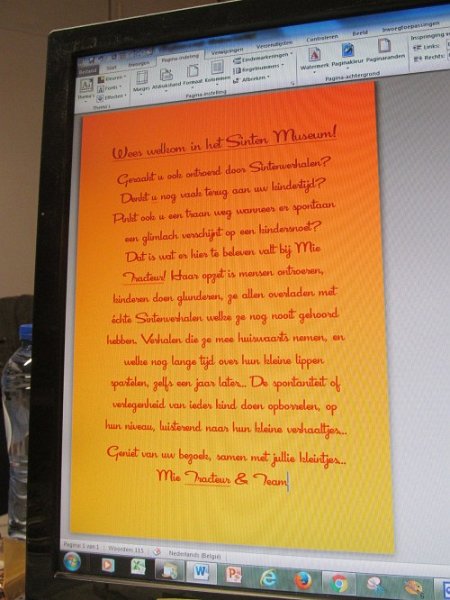 Bestand Start Invoegen Pagina-indeling Verwijzingen Verzendlijsten Controleren Beeld Invoegtoepassingen
Thema's
Kleuren
Fonts
Effecten
Thema's
Marges Afdrukstand Formaat Kolommen
Eindemarkeringen
Regelnummers
Afbreken
Pagina-instelling
Watermerk Paginakleur Paginaranden
Pagina-achtergrond
Inspringing
Links:
Rechts:
Wees welkom in het Sinten Museum!
Geraakt u ook ontroerd door Sintenverhalen?
Denkt u nog vaak terug aan uw kindertijd?
Pinkt ook u een traan weg wanneer er spontaan
een glimlach verschijnt op een kindersnoet?
Dat is wat er hier te beleven valt bij Mie
Tracteur! Haar opzet is mensen ontroeren,
kinderen doen glunderen, ze allen overladen met
échte Sintenverhalen welke ze nog nooit gehoord
hebben. Verhalen die ze mee huiswaarts nemen, en
welke nog lange tijd over hun kleine lippen
spartelen, zelfs een jaar later... De spontaniteit of
verlegenheid van ieder kind doen opborrelen, op
hun niveau, luisterend naar hun kleine verhaaltjes...
Geniet van uw bezoek, samen met jullie kleintjes...
Mie Tracteur & Team
Pagina: 1 van 1 Woorden: 115 Nederlands (België)